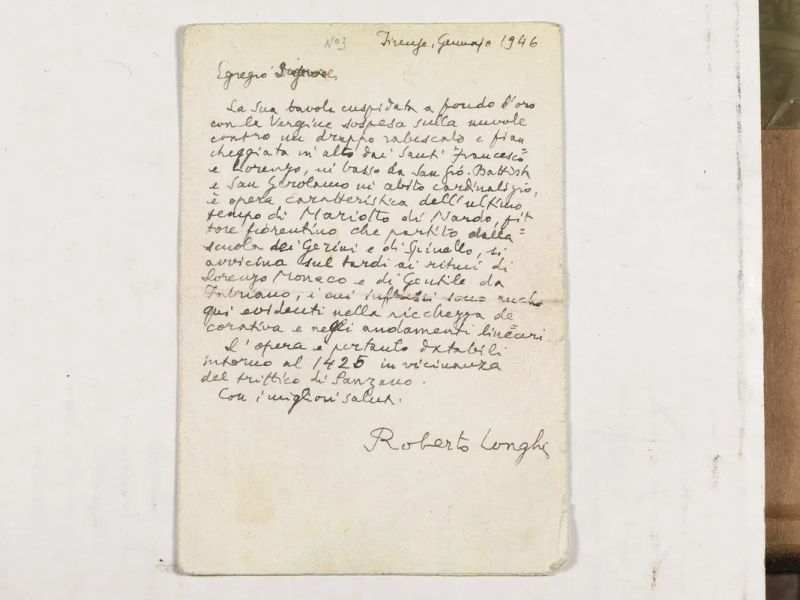 Nº3
Firenze, Gennajo 1946
Egregio Signore,
La Sua tavola cuspidata a fondo d'oro
con la Vergine sospesa sulla nuvole
contro un drappo rabescato e fian
cheggiata in alto dai Santi Francesco
e Lorenzo, in basso da San Gio. Battista
e San Gerolamo in abito cardinalizio,
è opera caratteristica dell'ultimo
tempo di Mariotto di Nardo, pit
tore fiorentino che partito dalla
scuola dei Gerini e di Spinello, si
avvicina sul tardi ai ritmi di
Lorenzo Monaco e di Gentile da
Fabriano, i cui influssi sono anche
qui evidenti nella ricchezza de
corativa e negli andamenti lineari
L'opera è pertanto databili
intorno al 1425 in vicinanza
del trittico di Panzano.
Con i migliori saluti.
Roberto Longhi